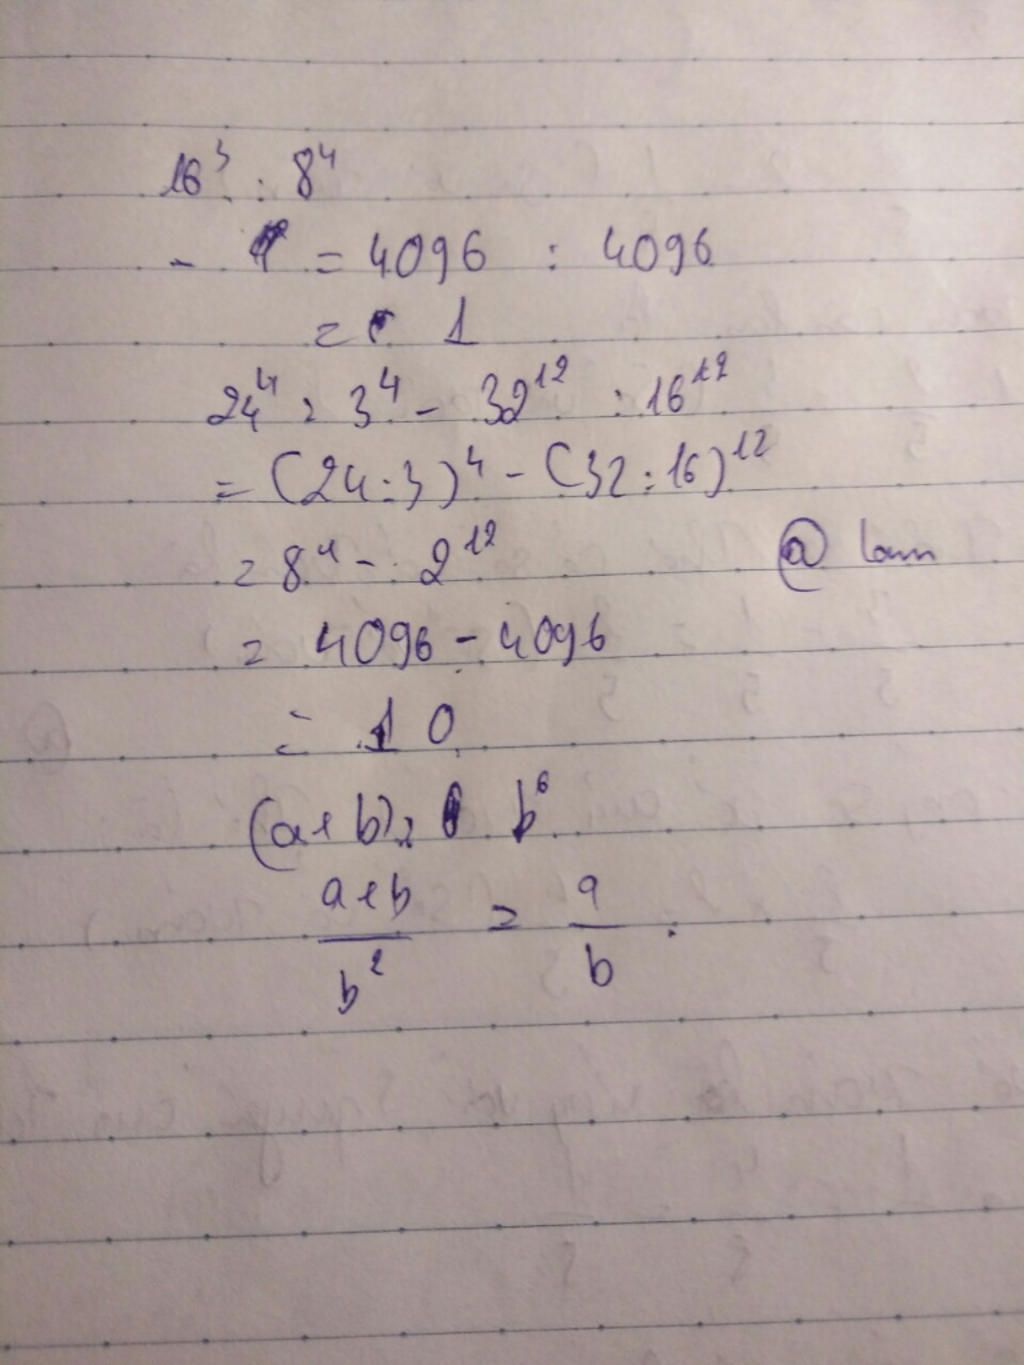 16³ : 8⁴
- = 4096 : 4096
= 1
24⁴ : 3⁴ - 32¹² : 16¹²
= (24:3)⁴ - (32:16)¹²
= 8⁴ - 2¹²
@ lam
= 4096 - 4096
= 0
(a+b): b⁶
a+b / b² = a / b :